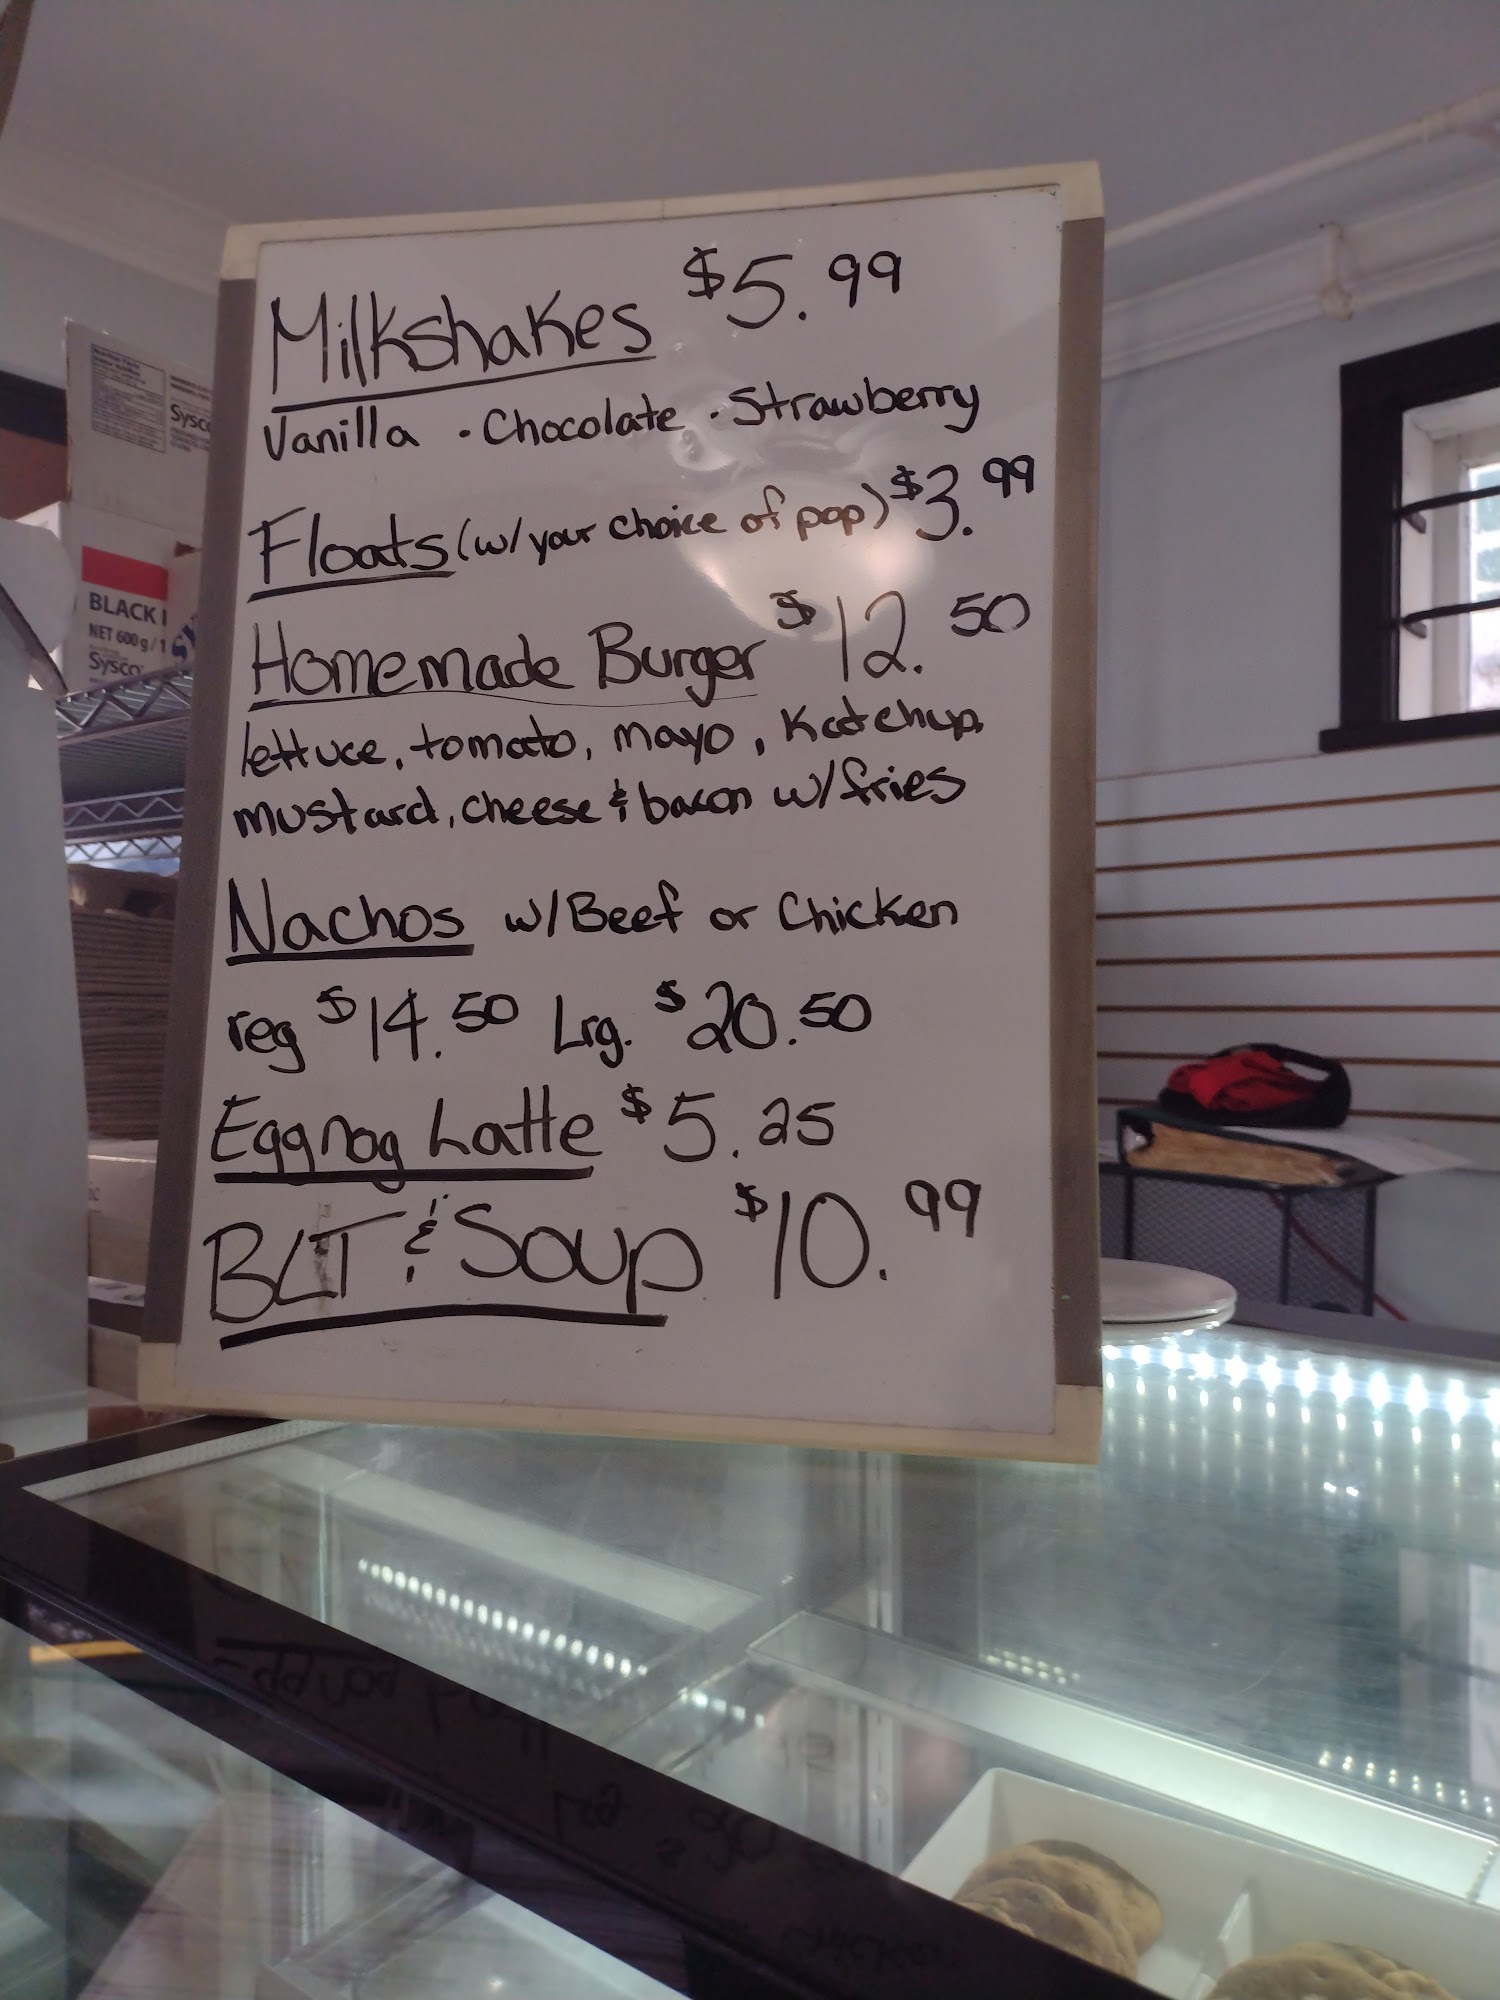 Milkshakes $5.99
Vanilla · Chocolate · Strawberry
Floats (w/ your choice of pop) $3.99
Homemade Burger $12.50
lettuce, tomato, mayo, Katchup,
mustard, cheese & bacon w/ fries
Nachos w/ Beef or Chicken
reg $14.50 Lrg. $20.50
Eggnog Latte $5.25
BLT & Soup $10.99
Sysco
BLACK
NET 600 g / 1
Sysco